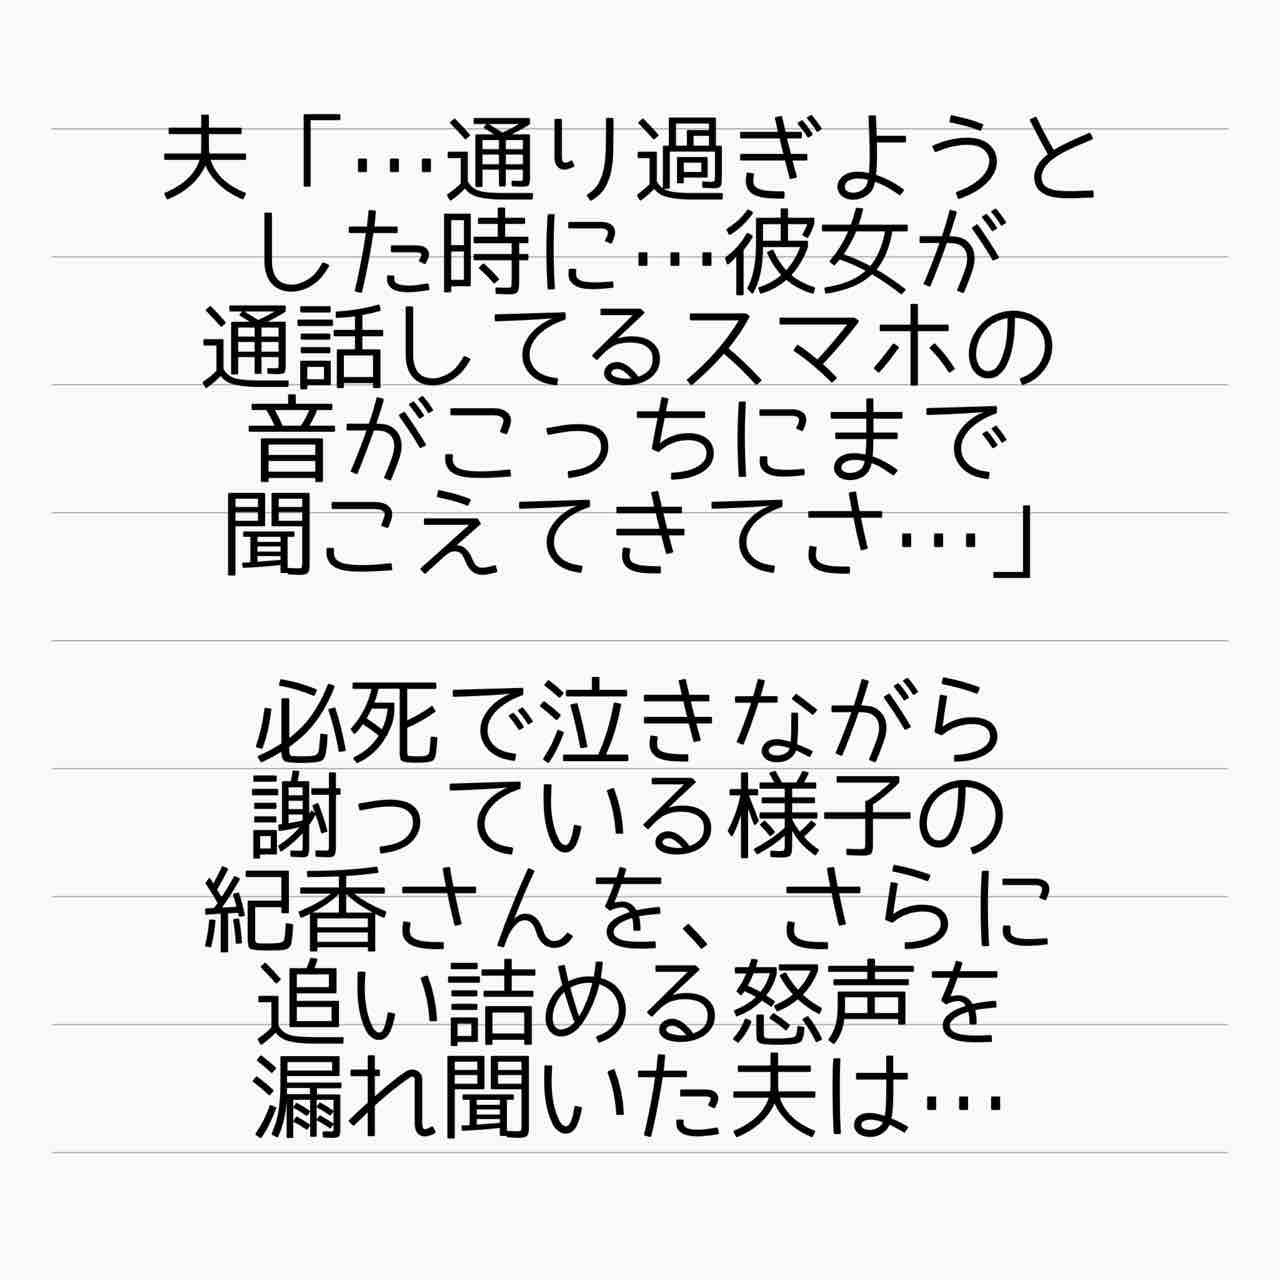 夫「…通り過ぎようと
した時に…彼女が
通話してるスマホの
音がこっちにまで
聞こえてきてさ…」
必死で泣きながら
謝っている様子の
紀香さんを、さらに
追い詰める怒声を
漏れ聞いた夫は…